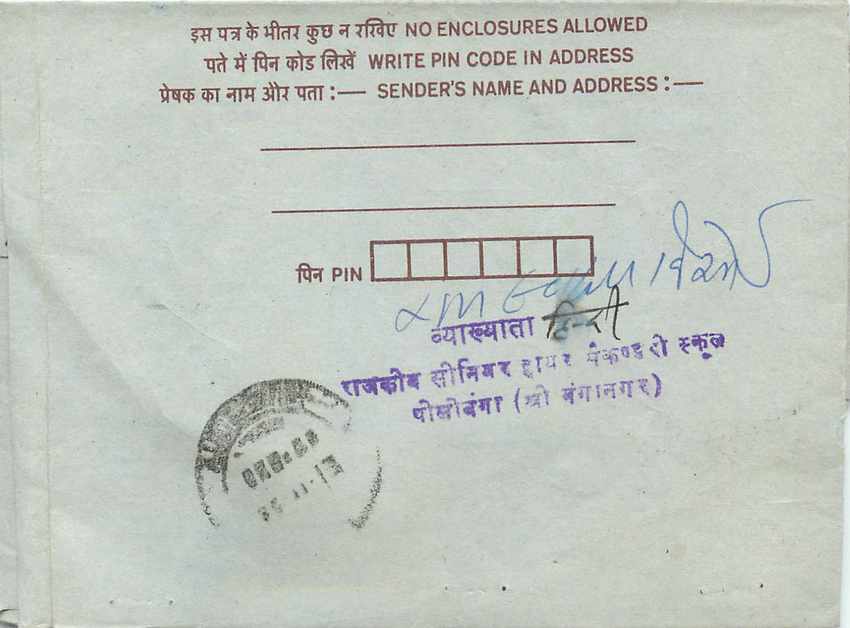 इस पत्र के भीतर कुछ न रखिए NO ENCLOSURES ALLOWED
पते में पिन कोड लिखें WRITE PIN CODE IN ADDRESS
प्रेषक का नाम और पता :— SENDER'S NAME AND ADDRESS :—
पिन PIN
व्याख्याता हिन्दी
राजकीय सीनियर हायर सैकण्डरी स्कूल
पीलीबंगा (श्री गंगानगर)